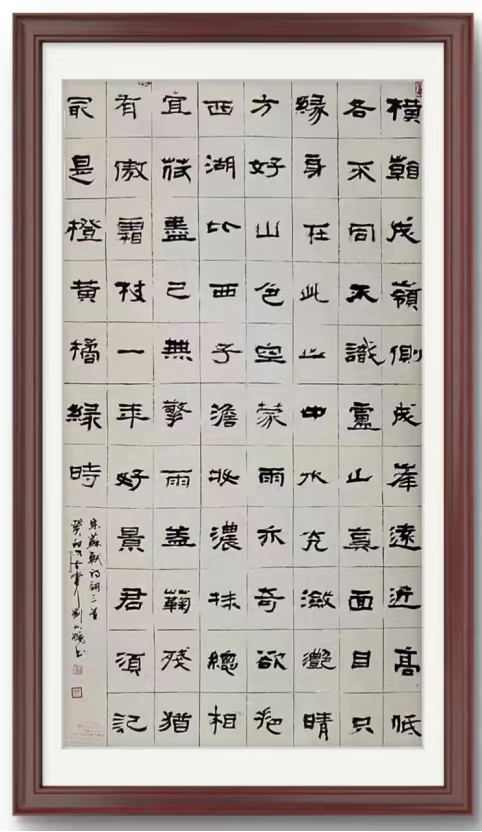 橫看成嶺側成峯遠近高低
各不同不識盧山真面目只
緣身在此山中水光瀲灩晴
方好山色空蒙雨亦奇欲把
西湖比西子澹妝濃抹總相
宜荷盡已無擎雨蓋菊殘猶
有傲霜枝一年好景君須記
最是橙黃橘綠時
宋蘇軾詩詞三首
癸卯 劉 書